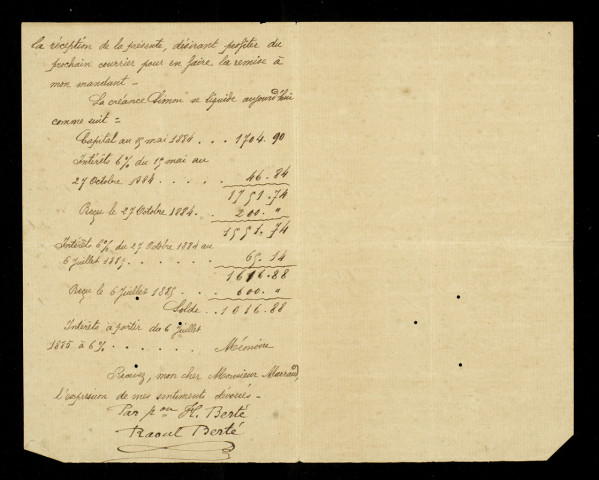 la réception de la présente, désirant profiter du
prochain courrier pour en faire la remise à
mon mandant –
La créance Simon se liquide aujourd'hui
comme suit =
Capital au 15 mai 1884 . . . 1704. 90
Intérêts 6% du 15 mai au
27 Octobre 1884 . . . . . 46. 84
1751. 74
Reçu le 27 Octobre 1884. . 200. "
1551. 74
Intérêts 6% du 27 Octobre 1884 au
6 Juillet 1885 . . . . . . . 65. 14
1616. 88
Reçu le 6 Juillet 1885 . . . . 600. "
Solde . . 1016. 88
Intérêts à partir du 6 Juillet
1885 à 6% . . . . . . Mémoire
Recevez, mon cher Monsieur
l'expression de mes sentiments dévoués –
Par pon H. Berté
Raoul Berté